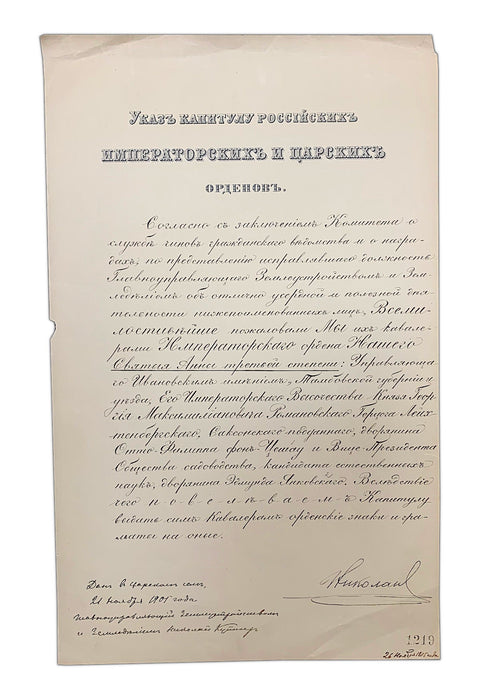 Указъ капитулу россійскихъ
императорскихъ и царскихъ
орденовъ.
Согласно съ заключеніемъ Комитета о
службѣ чиновъ гражданскаго вѣдомства и о награ-
дахъ, по представленію исправлявшаго должность
Главноуправляющаго Землеустройствомъ и Зем-
ледѣліемъ объ отлично усердной и полезной дѣя-
тельности нижепоименованныхъ лицъ, Всеми-
лостивѣйше пожаловали Мы ихъ кавале-
рами Императорскаго ордена Нашего
Святыя Анны третьей степени: Управляюща-
го Ивановскимъ имѣніемъ, Тамбовской губерніи и
уѣзда, Его Императорскаго Высочества Князя Геор-
гія Максимиліановича Романовскаго Герцога Лейх-
тенбергскаго, Саксонскаго подданнаго, дворянина
Отто-Филиппа фонъ-Цешау и Вице-Президента
Общества садоводства, кандидата естественныхъ
наукъ, дворянина Эдмунда Янковскаго. Вслѣдствіе
чего повелѣваемъ Капитулу
выдать симъ Кавалерамъ орденскіе знаки и гра-
маты на оные.
Николай
Данъ въ Царскомъ селѣ,
21 ноября 1905 года
Главноуправляющій Землеустройствомъ
и Земледѣліемъ Николай Кутлеръ
1219
26 Ноября 1905 года